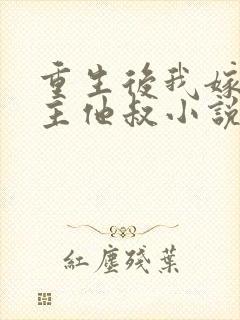 重生後我嫁
主他叔小説
紅塵殘葉